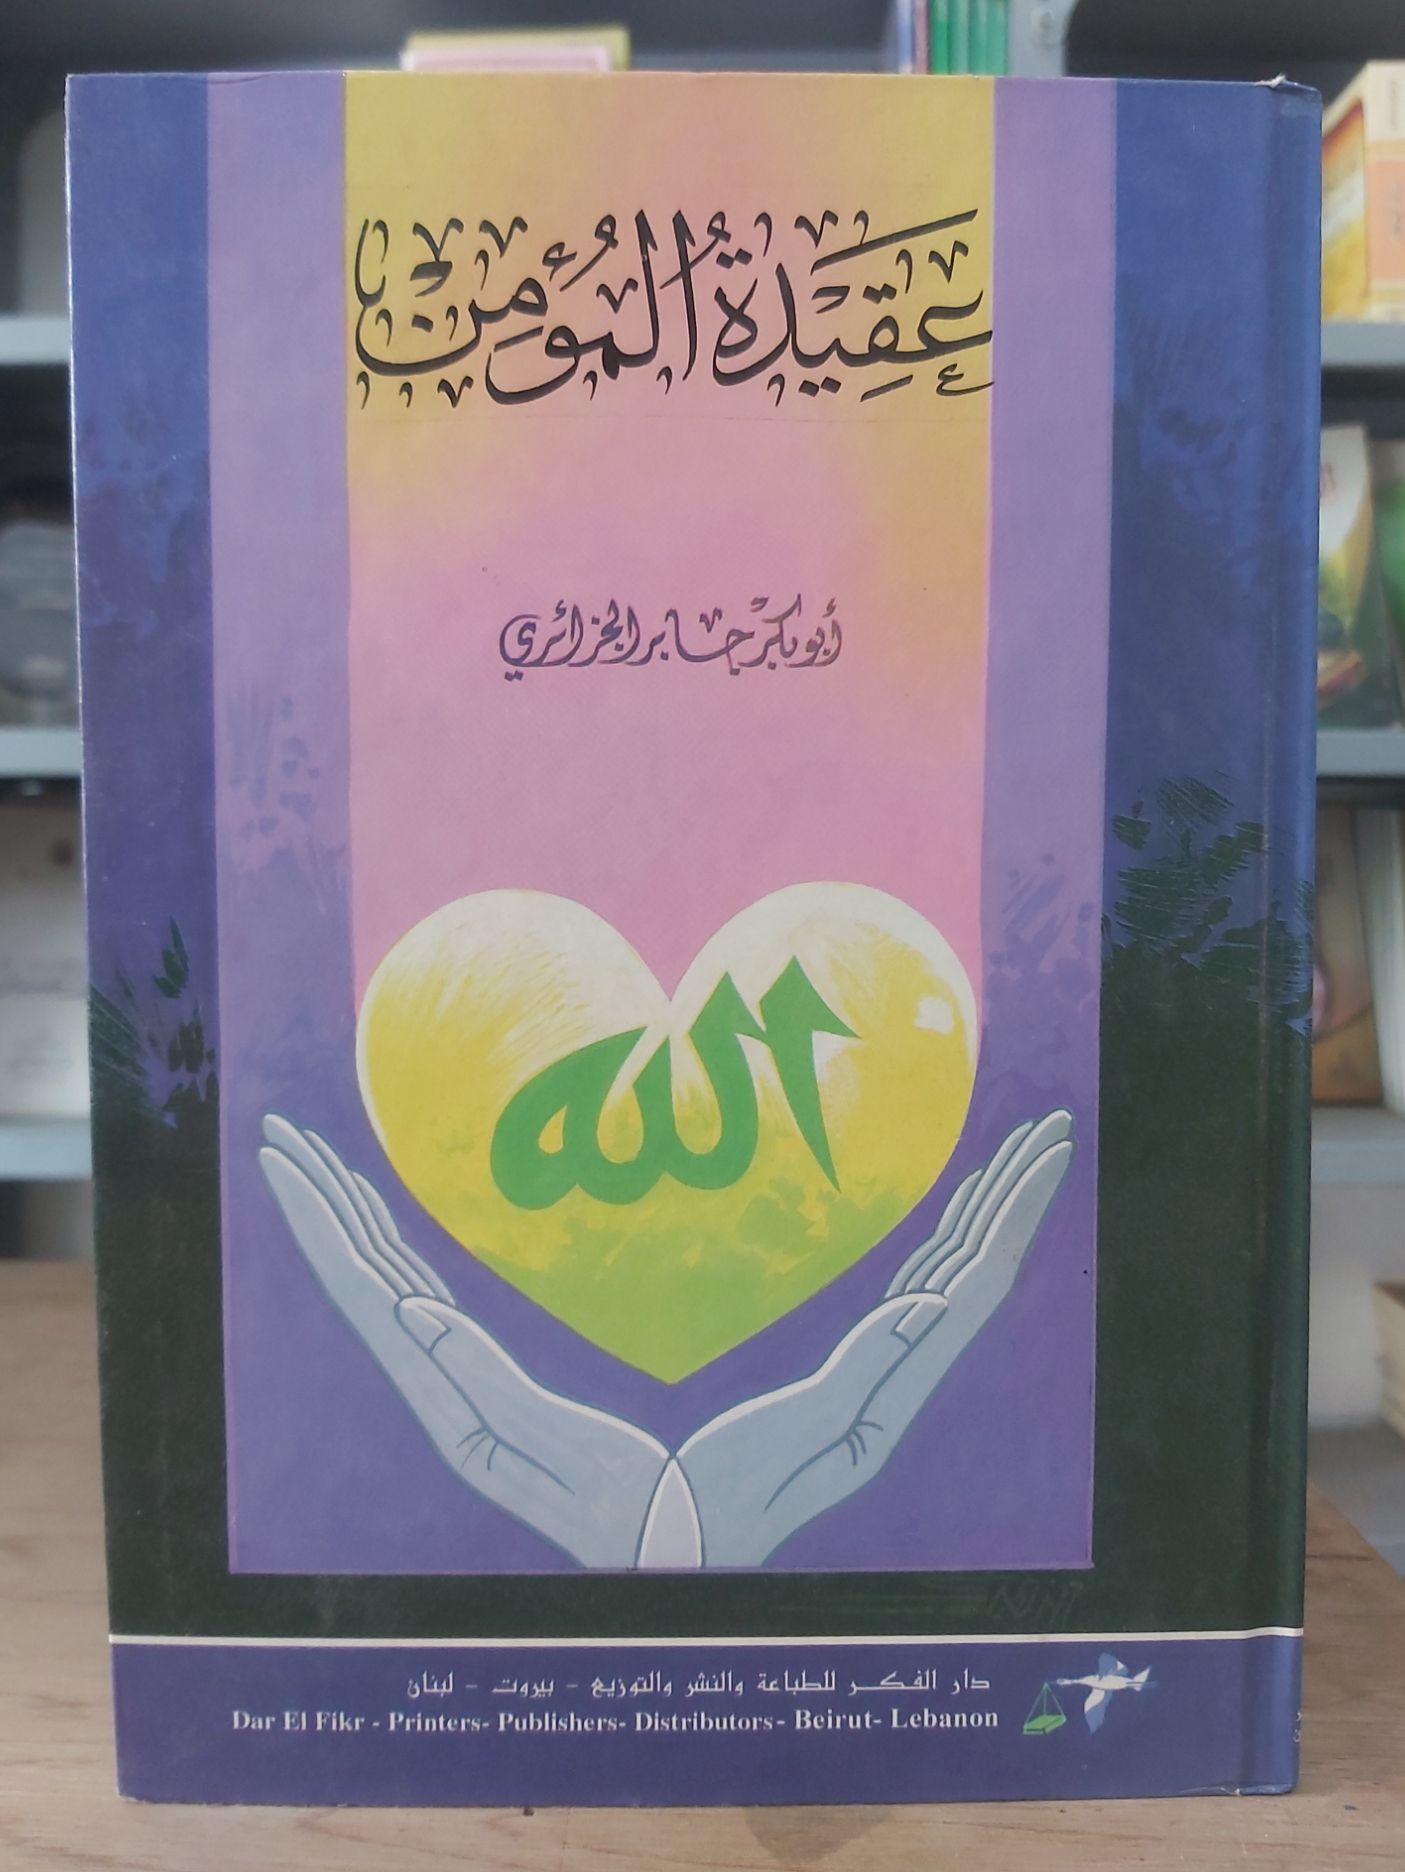 عَقِيْدَةُ الْمُؤْمِنْ
أبو بكر جابر الجزائري
الله
دار الفكر للطباعة والنشر والتوزيع - بيروت - لبنان
Dar El Fikr - Printers- Publishers- Distributors- Beirut- Lebanon